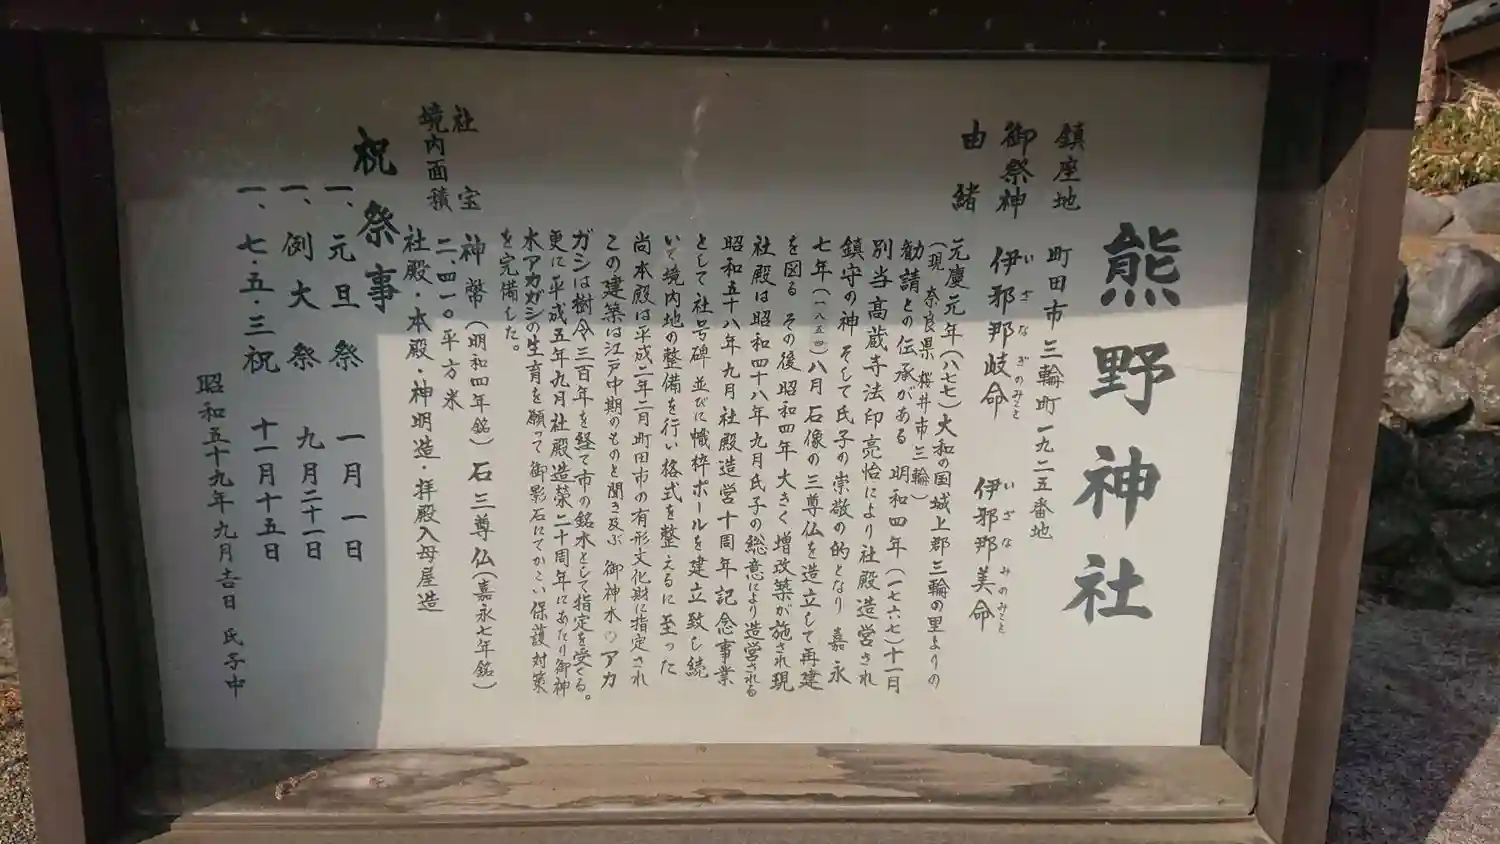 熊野神社
鎮座地 町田市三輪町一九二五番地
御祭神 伊邪那岐命 伊邪那美命
いざなぎのみこと いざなみのみこと
由緒 元慶元年(八七七)大和の国城上郡三輪の里よりの
(現 奈良県桜井市三輪)
勧請との伝承がある 明和四年(一七六七)十一月
別当高蔵寺法印亮怡により社殿造営され
鎮守の神そして氏子の崇敬の的となり 嘉永
七年(一八五四)八月石像の三尊仏を造立して再建
を図る その後昭和四年大きく増改築が施され現
社殿は昭和四十八年九月氏子の総意により造営される
昭和五十八年九月社殿造営十周年記念事業
として社号碑 並びに幟枠ポールを建立致し続
いて境内地の整備を行い格式を整えるに至った
尚本殿は平成二年二月町田市の有形文化財に指定され
この建築は江戸中期のものと聞き及ぶ 御神木のアカ
ガシは樹令三百年を経て市の銘木として指定を受くる。
更に平成五年九月社殿造築二十周年にあたり御神
木アカガシの生育を願って御影石にてかこい保護対策
を完備した。
社宝 神幣(明和四年銘) 石三尊仏(嘉永七年銘)
境内面積 二、四一〇平方米
社殿・本殿・神明造・拝殿入母屋造
祝祭事
一、元旦祭 一月一日
一、例大祭 九月二十一日
一、七・五・三祝 十一月十五日
昭和五十九年九月吉日 氏子中